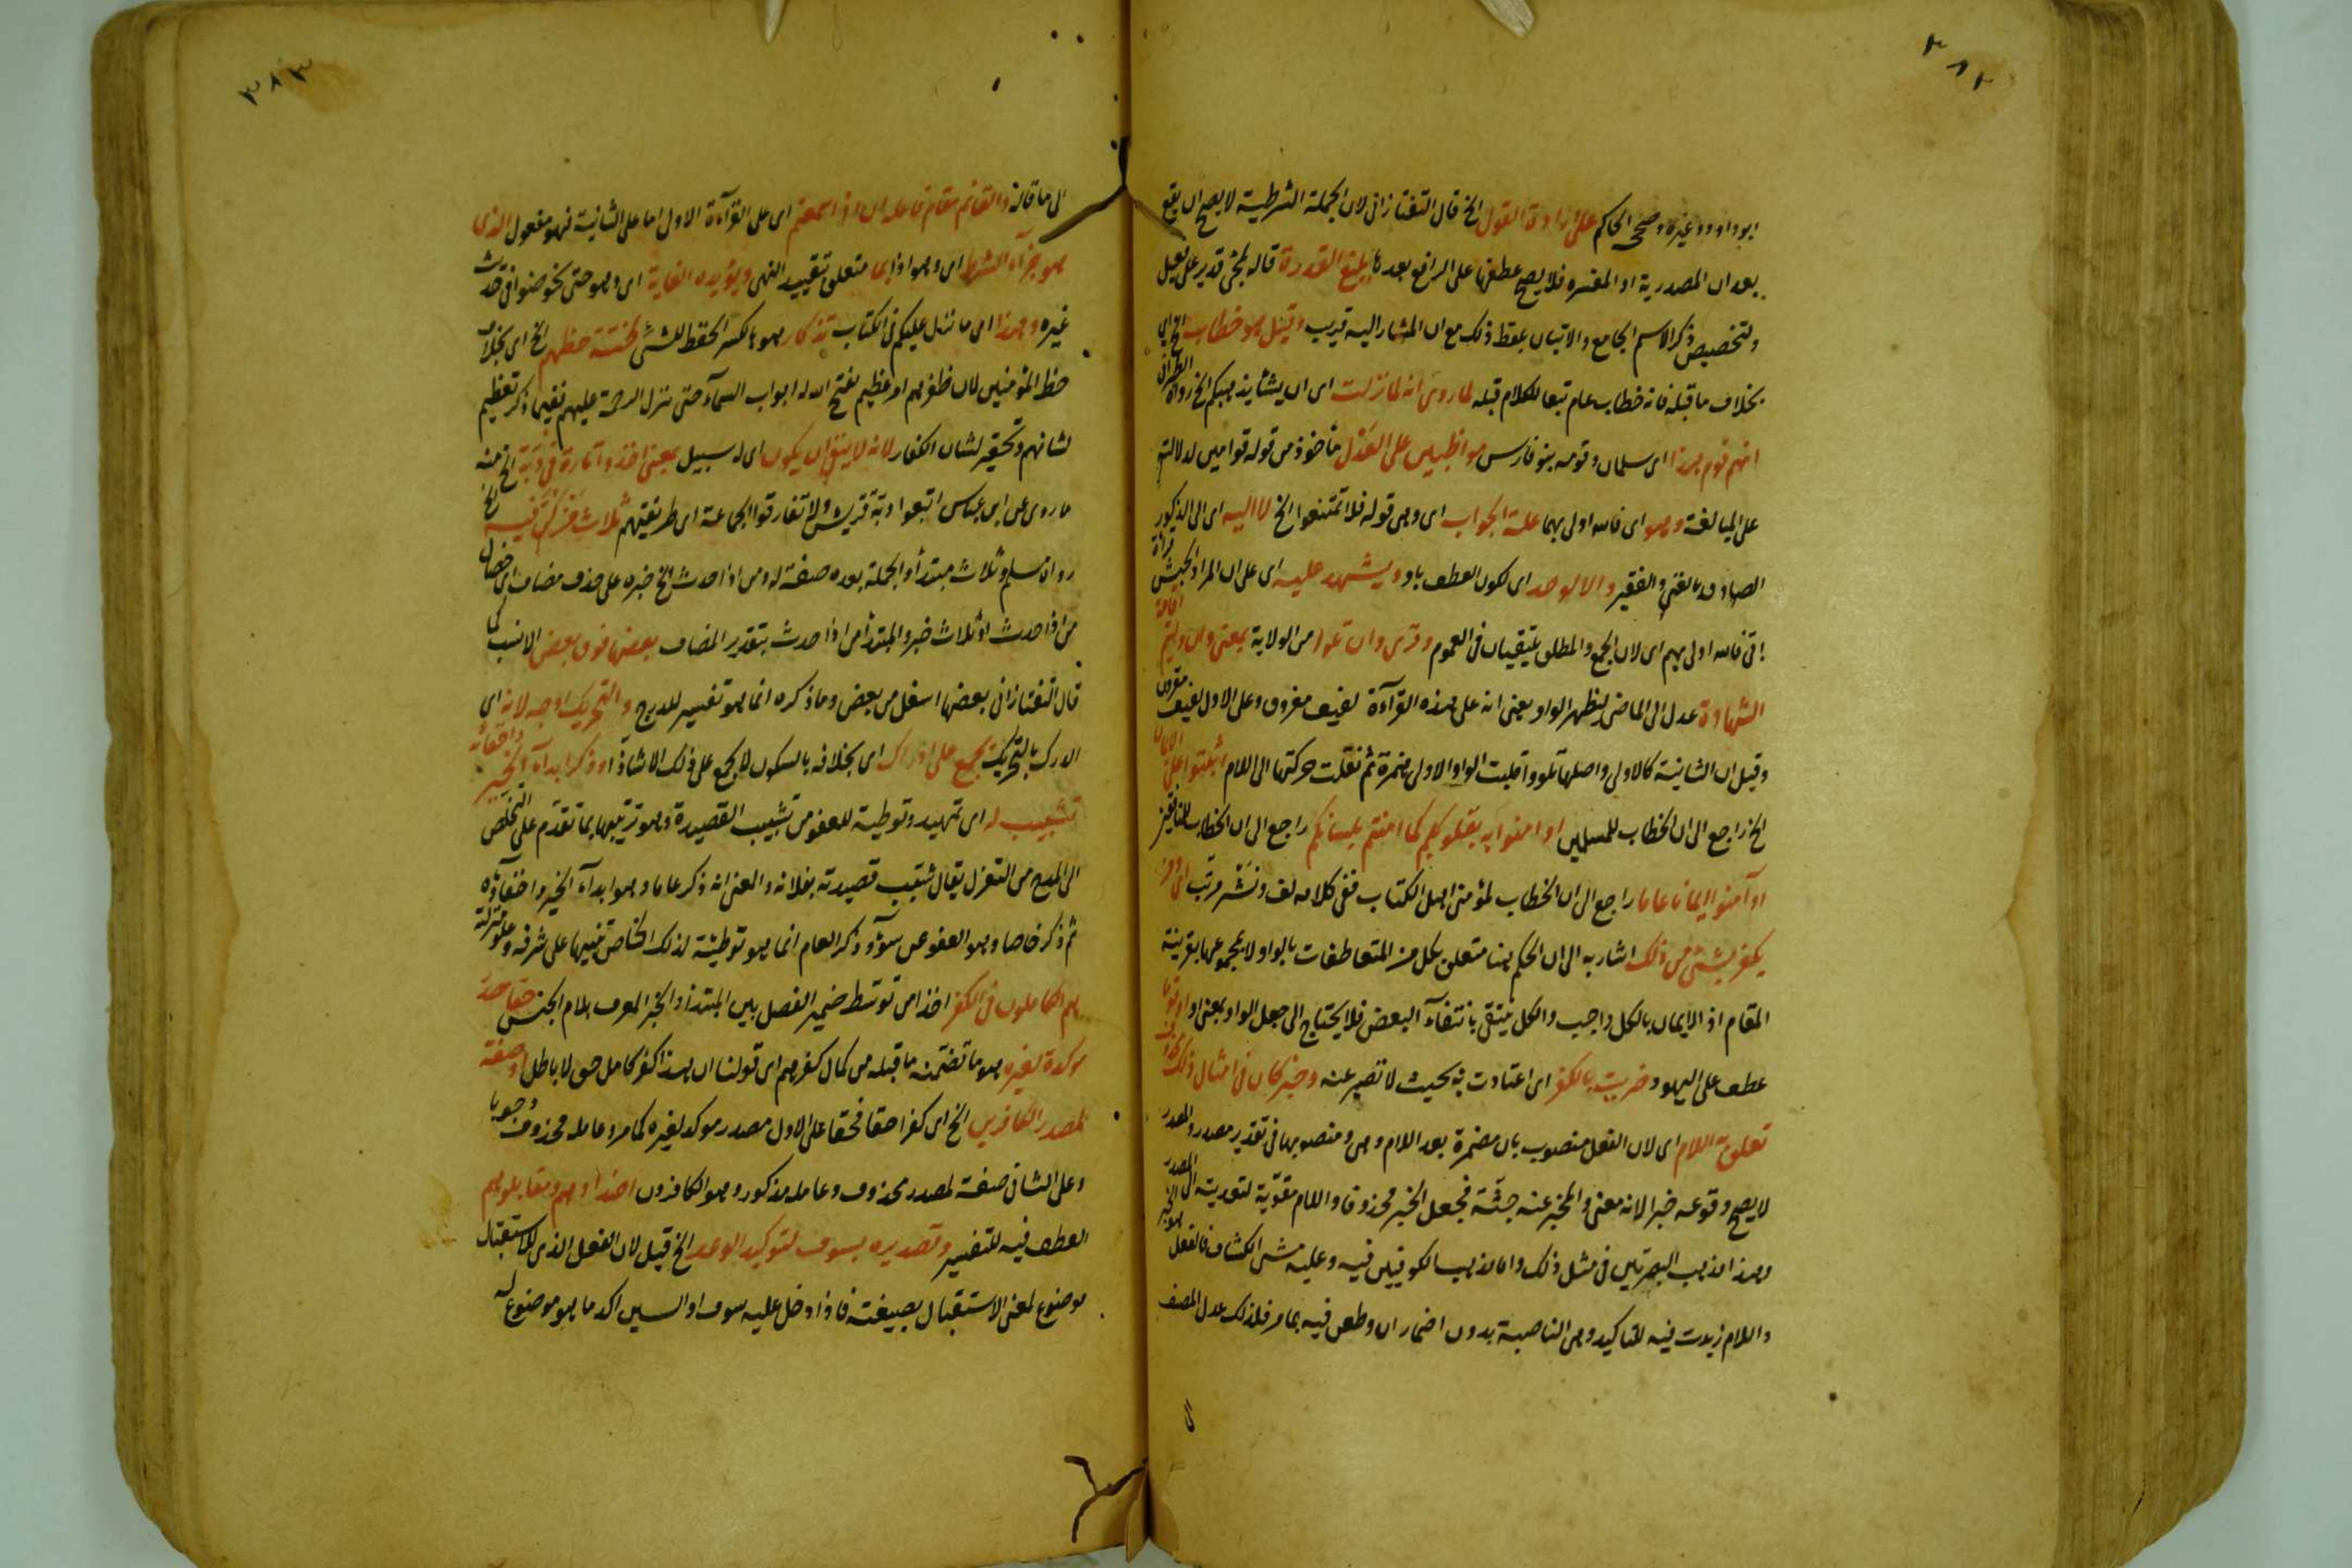 ٣٨٢
ابو داود وغيره وصححه الحاكم على ارادة القول الخ قال التفتازانى لان الجملة الشرطية لا يصح ان يقع
بعد ان المصدرية او المفسرة فلا يصح عطفها على الرافع بعدها بليغ القدرة قاله لمجئ قدير على فعيل
ولتخصيص ذكر الاسم الجامع والاتيان بلفظ ذلك مع ان المشار اليه قريب وقيل هو خطاب الخ اى
بخلاف ما قبله فانه خطاب عام تبعا للكلام قبله لما روى انه لما نزلت اى ان يشأ يذهبكم الخ رواه الطبرانى
انهم قوم هذا اى سلمان وقومه بنو فارس مواظبين على العدل مأخوذ من قوله قوامين لدلالته
على المبالغة وهو اى فالله اولى بهما علة الجواب اى وهى قوله فلا تمتنعوا الخ لا اليه اى الى المذكور
الصادق بالغنى والفقير والا لوحد اى لكون العطف باو ويشهد عليه اى على ان المراد الجنس قرأة
اقامة
اتى فالله اولى بهم اى لان الجمع والمطلق يلتقيان فى العموم وقرئ وان تلوا من الولاية بمعنى وان وليتم
الشهادة عدل الى الماضى ليظهر الواو يعنى انه على هذه القرآءة لفيف مفروق وعلى الاول لفيف مقرون
وقيل ان الثانية كالاولى واصلها تلووا قلبت الواو الاولى همزة ثم نقلت حركتها الى اللام اثبتوا على الايمان
الخ راجع الى ان الخطاب للمسلمين او امنوا به بقلوبكم كما امنتم بلسانكم راجع الى ان الخطاب للمنافقين
او آمنوا ايمانا عاما راجع الى ان الخطاب لمؤمنى اهل الكتاب ففى كلامه لف ونشر مرتب اى ومن
يكفر بشئ من ذلك اشار به الى ان الحكم هنا متعلق بكل من المتعاطفات بالواو لا بمجموعها بقرينة
المقام اذ الايمان بالكل واجب والكل ينتفى بانتفآء البعض فلا يحتاج الى جعل الواو بمعنى او او قوما
عطف على اليهود وضريت بالكفر اى اعتادت به بحيث لا تصبر عنه وخبر كان فى امثال ذلك
تعلق به اللام اى لان الفعل منصوب بان مضمرة بعد اللام وهى ومنصوبها فى تقدير مصدر والمصدر
لا يصح وقوعه خبرا لانه معنى والمخبر عنه جثة فجعل الخبر محذوفا واللام مقوية لتعديته الى المصدر
وهذا مذهب البصريين فى مثل ذلك واما مذهب الكوفيين فيه وعليه مشى الكشاف فالفعل هو الخبر
واللام زيدت فيه للتاكيد وهى الناصبة بدون اضمار ان وطعن فيه بمامر فلذلك عدل المصنف
٣٨٣
الى ما قاله والقائم مقام فاعله ان اذا سمعتم اى على القرآءة الاولى اما على الثانية فهو مفعول الذى
هو جزآء الشرط اى وهو اذا بما متعلق بتقييد النهى ويؤيده الغاية اى وهو حتى يخوضوا فى حديث
غيره وهذا اى ما نزل عليكم فى الكتاب تذكار هو بالكسر الحفظ للشئ لخسة حظهم الخ اى بخلاف
حظ المؤمنين لان ظفرهم امر عظيم يفتح الله له ابواب السمآء حتى ينزل الرحمة عليهم ففيما ذكر تعظيم
لشانهم وتحقير لشان الكفار لانه لا ينفى ان يكون اى له سبيل بمعنى اخذ
ما روى عن ابن عباس اتبعوا دبة قريش ولا تفارقوا الجماعة اى طريقتهم ثلاث من كن فيه الخ
رواه مسلم وثلاث مبتدأ والجملة بعده صفة له ومن اذا حدث الخ خبره على حذف مضاف اى خصال
من اذا حدث او ثلاث خبر والمبتدأ من اذا حدث بتقدير المضاف بعضها فوق بعض الانسب كما
قال التفتازانى بعضها اسفل من بعض وما ذكره انما هو تفسير للدرج والتحريك اوجه لانه اى
الدرك بالتحريك يجمع على ادراك اى بخلافه بالسكون لا يجمع على ذلك الا شاذا وذكر ابدآء الخير واخفائه
تشبيب له اى تمهيد وتوطية للعفو من تشبيب القصيدة وهو تزيينها بما تقدم على التخلص
الى المدح من التغزل يقال شبب قصيدته بفلانة والمعنى انه ذكر عاما وهو ابدآء الخير واخفآؤه
ثم ذكر خاصا وهو العفو عن سوء وذكر العام انما هو توطئة لذلك الخاص تنبيها على شرفه وعلو منزلته
هم الكاملون فى الكفر اخذا من توسط ضمير الفصل بين المبتدا والخبر المعرف بلام الجنس حقا مصدر
موكدة لغيره هو ما تضمنه ما قبله من كمال كفرهم اى قولنا ان هذا كفر كامل حق لا باطل او صفة
لمصدر الكافرين الخ اى كفرا حقا فحقا على الاول مصدر موكد لغيره كما مر وعامله محذوف وجوبا
وعلى الثانى صفة لمصدر محذوف وعامله مذكور وهو الكافرون اضدادهم ومقابلوهم
العطف فيه للتفسير وتصديره بسوف لتوكيد الوعد الخ قيل لان الفعل الذى للاستقبال
موضوع لمعنى الاستقبال بصيغته فاذا دخل عليه سوف او السين اكد ما هو موضوع له